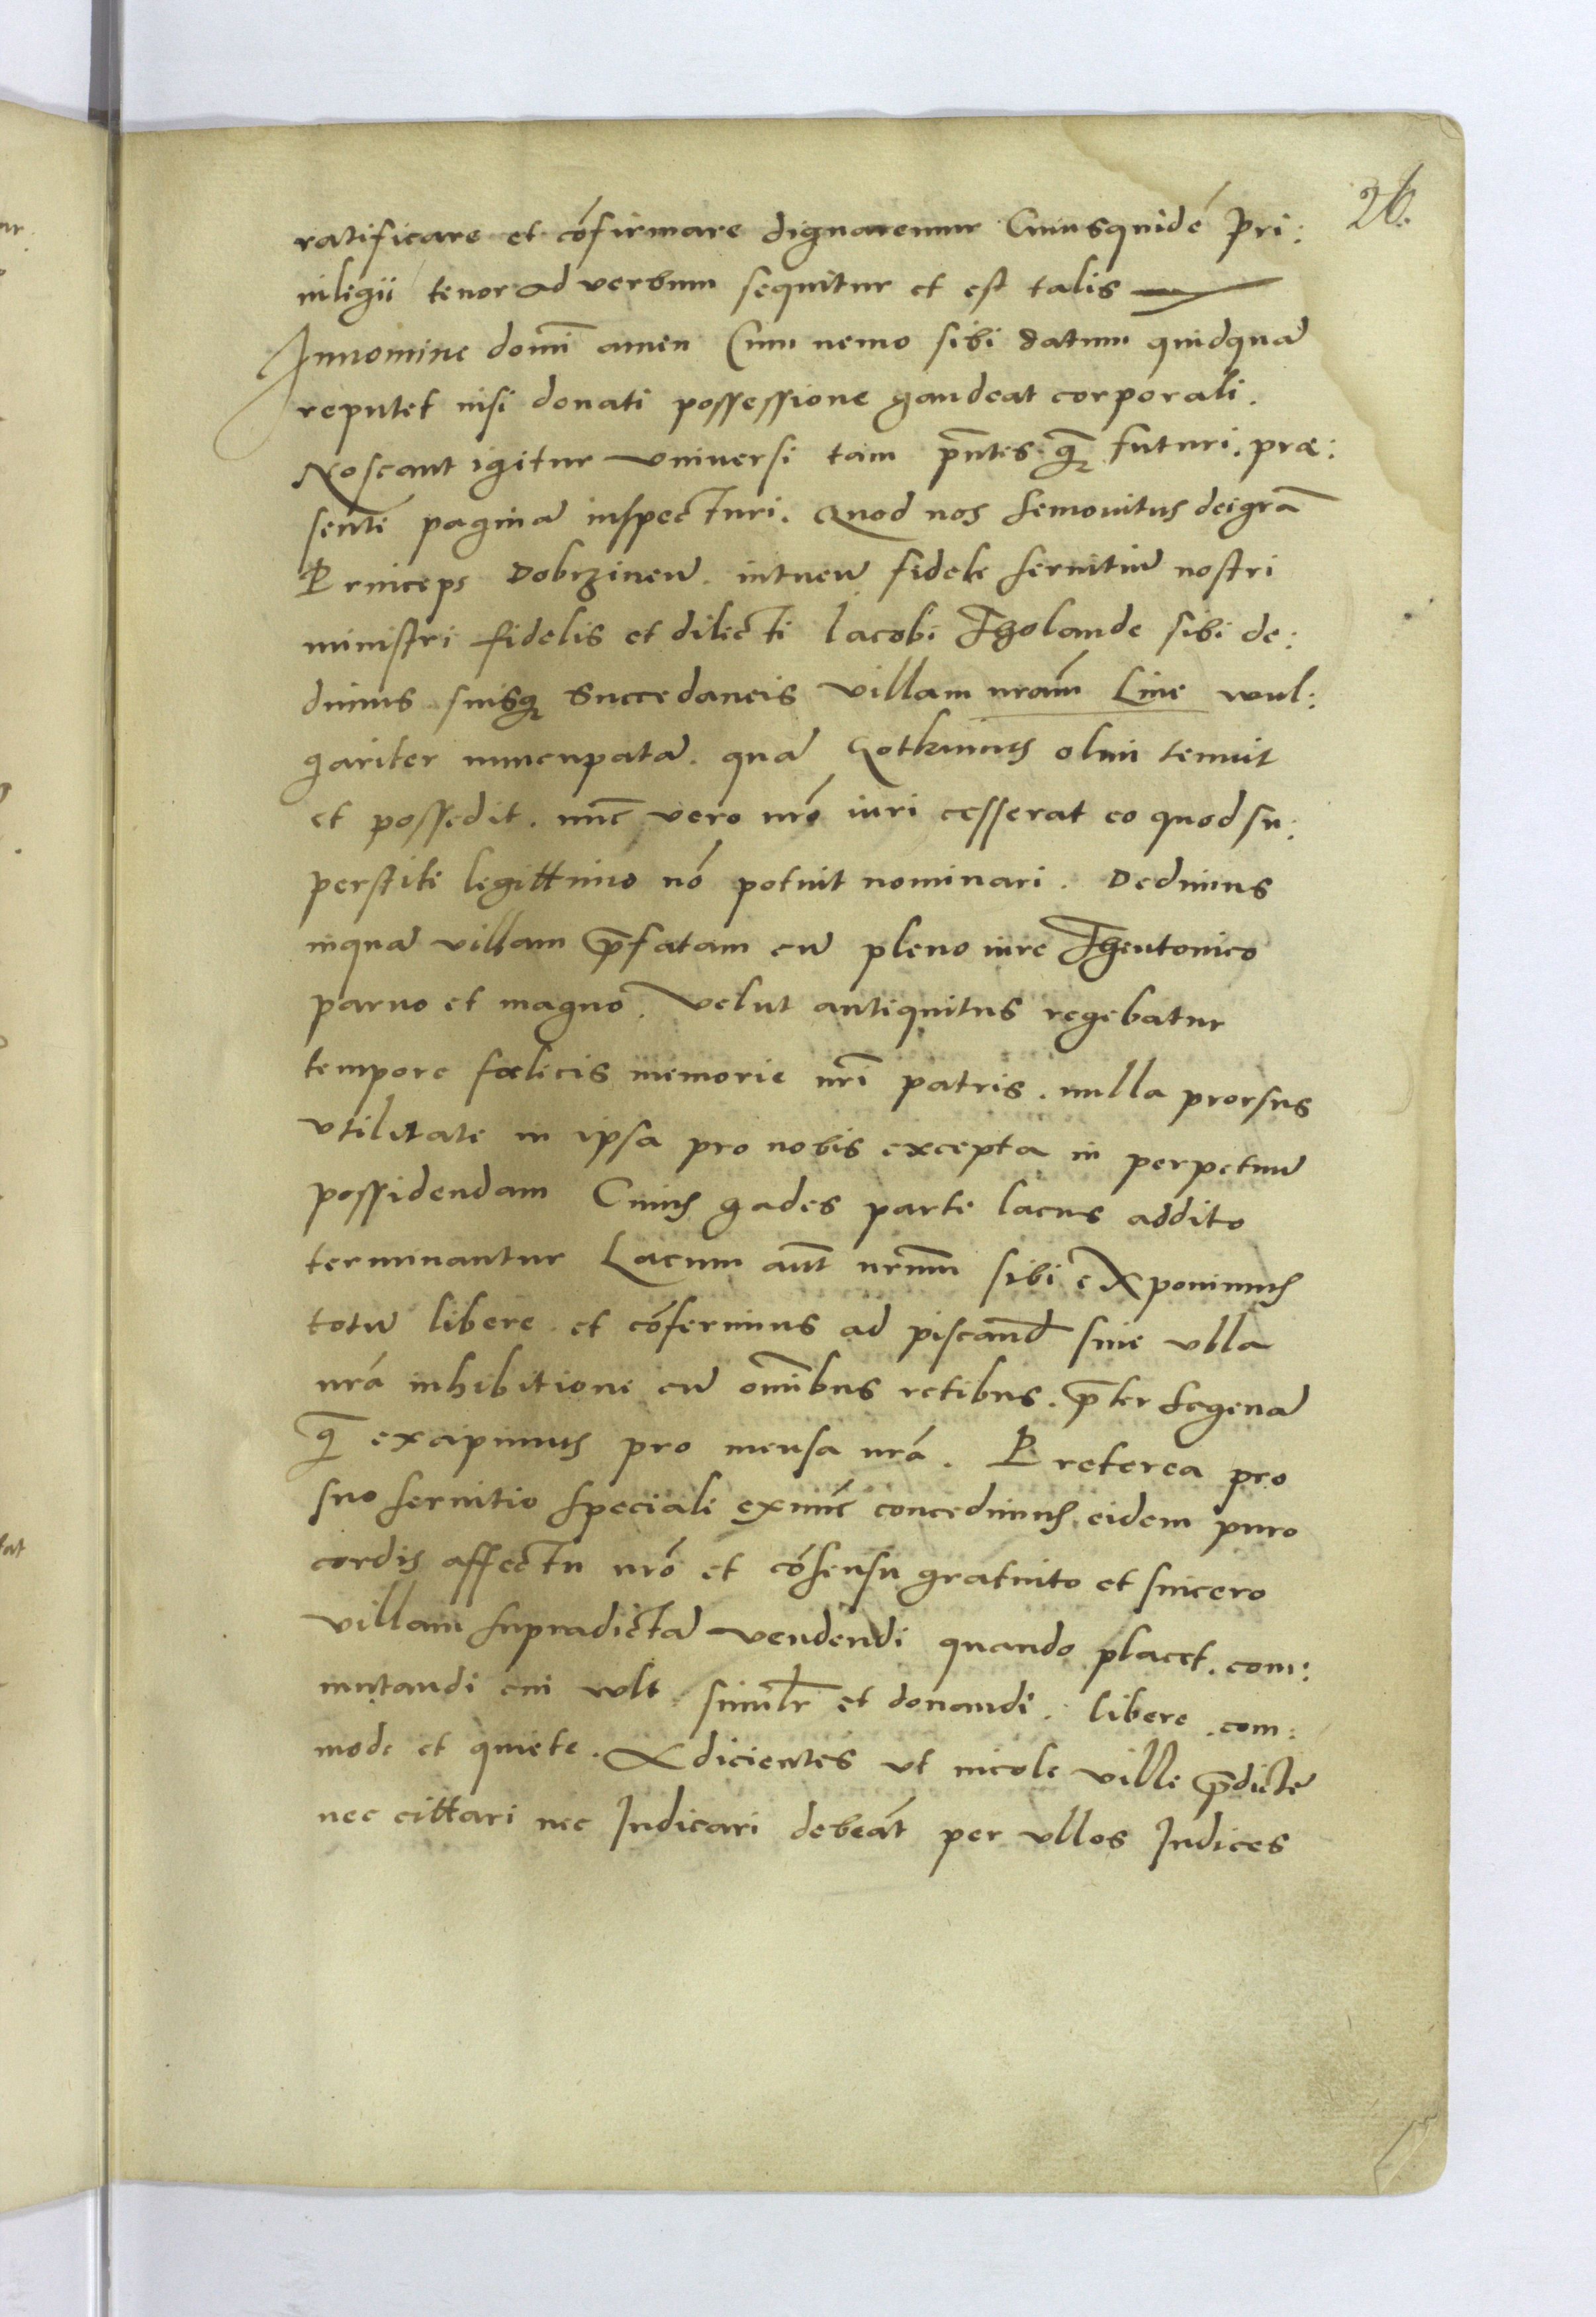 26.
ratificare et cōfirmare dignaremur Cuiusquidē Pri:
uilegii tenor ad verbum sequitur et est talis
Innomine domī amen Cum nemo sibi datum quidquā
reputet nisi donati possessione gaudeat corporali.
Noscant igitur vniuersi tam pn̄tes q̄ȝ futuri. præ:
sentē paginā inspecturi. Quod nos semouitus deigrā
Princeps Dobrzineñ. intueñ fidele seruitiū nostri
ministri fidelis et dilecti Iacobi Tholande sibi de:
dimus suisqȝ succedaneis villam nrām Line wul:
gariter nuncupatā. quā Gotkinus olim tenuit
et possedit. nūc vero nrō iuri cesserat eo quod su:
perstite legittimo nō potuit nominari. Dedimus
inquā villam p̄fatam cū pleno iure Theutonico
paruo et magno. velut antiquitus regebatur
tempore fœlicis memorie nrī patris. nulla prorsus
vtilitate in ipsa pro nobis excepta in perpetuū
possidendam Cuius gades parte lacus addito
terminantur Lacum aūt nrūm sibi exponimus
totū libere et cōferimus ad piscand̄ sine vlla
nrā inhibitione cū om̄ibus retibus. p̄ter sagenā
q̄ excipimus pro mensa nrā. Preterea pro
suo seruitio speciali exnūc concedimus eidem puro
cordis affectu nrō et cōsensu gratuito et sincero
villam supradictā vendendi quando placet. com:
mutandi cui vult simılr̄ et donandi. libere .com:
mode et quiete. Adicientes vt incole ville p̄dicte
nec cittari nec Iudicari debeāt per vllos Iudices